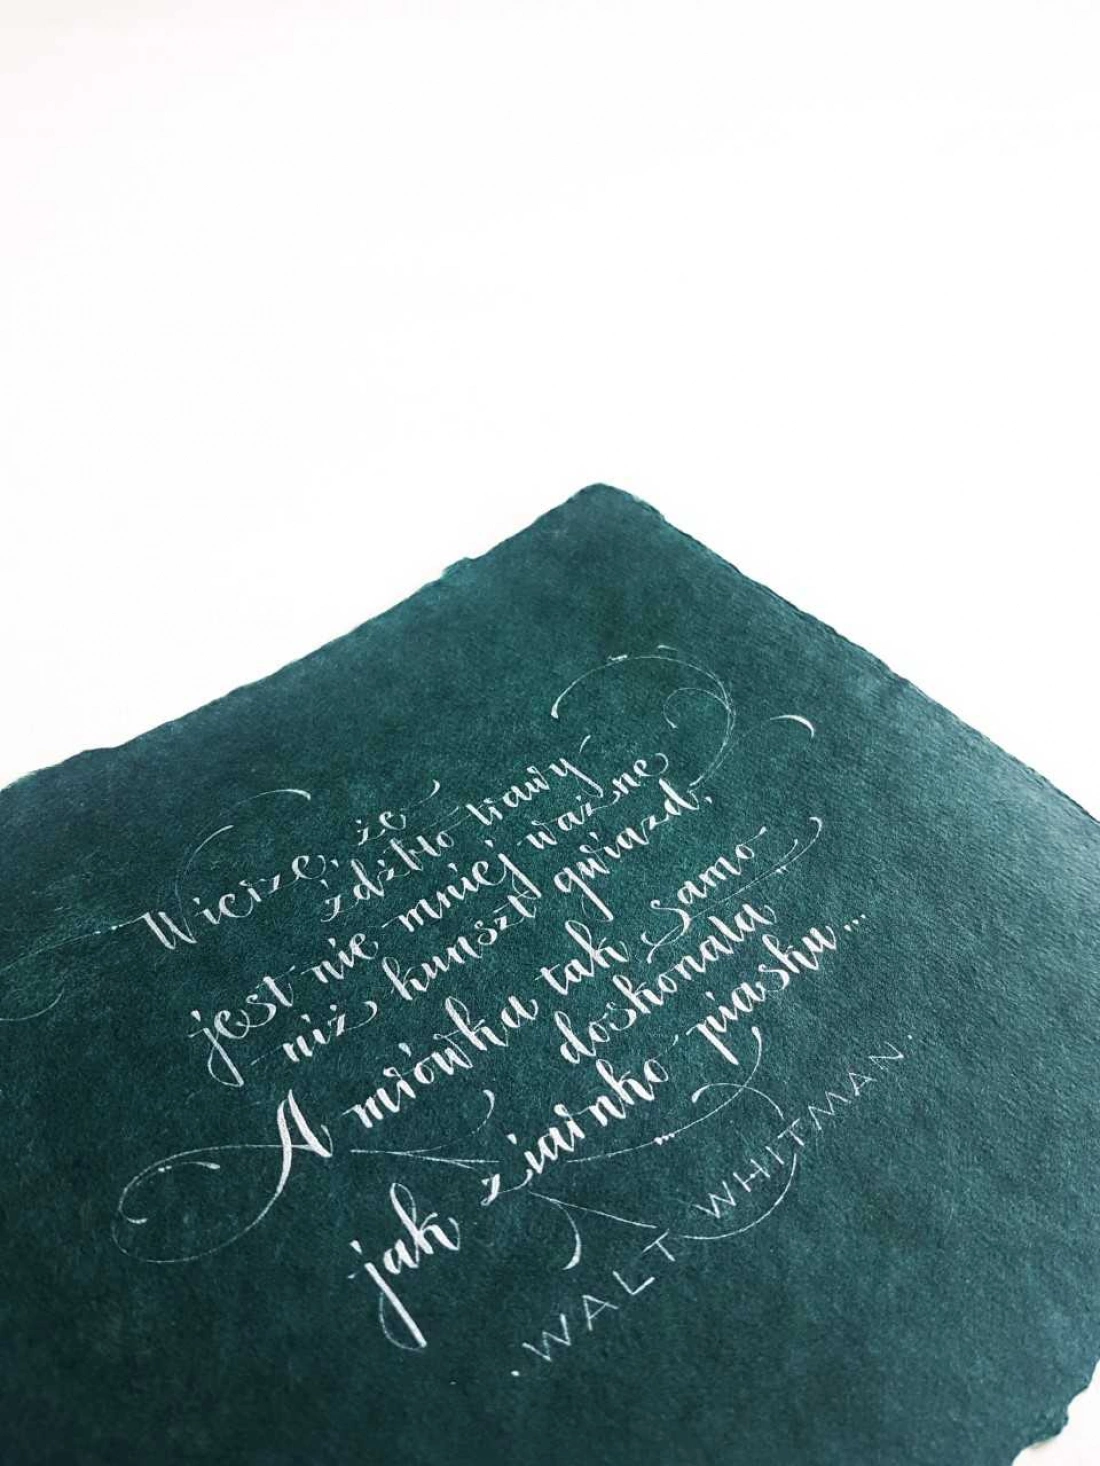 Wierzę, że
źdźbło trawy
jest nie mniej ważne
niż kunszt gwiazd,
A mrówka tak samo
doskonała
jak ziarnko piasku...
.WALT WHITMAN.